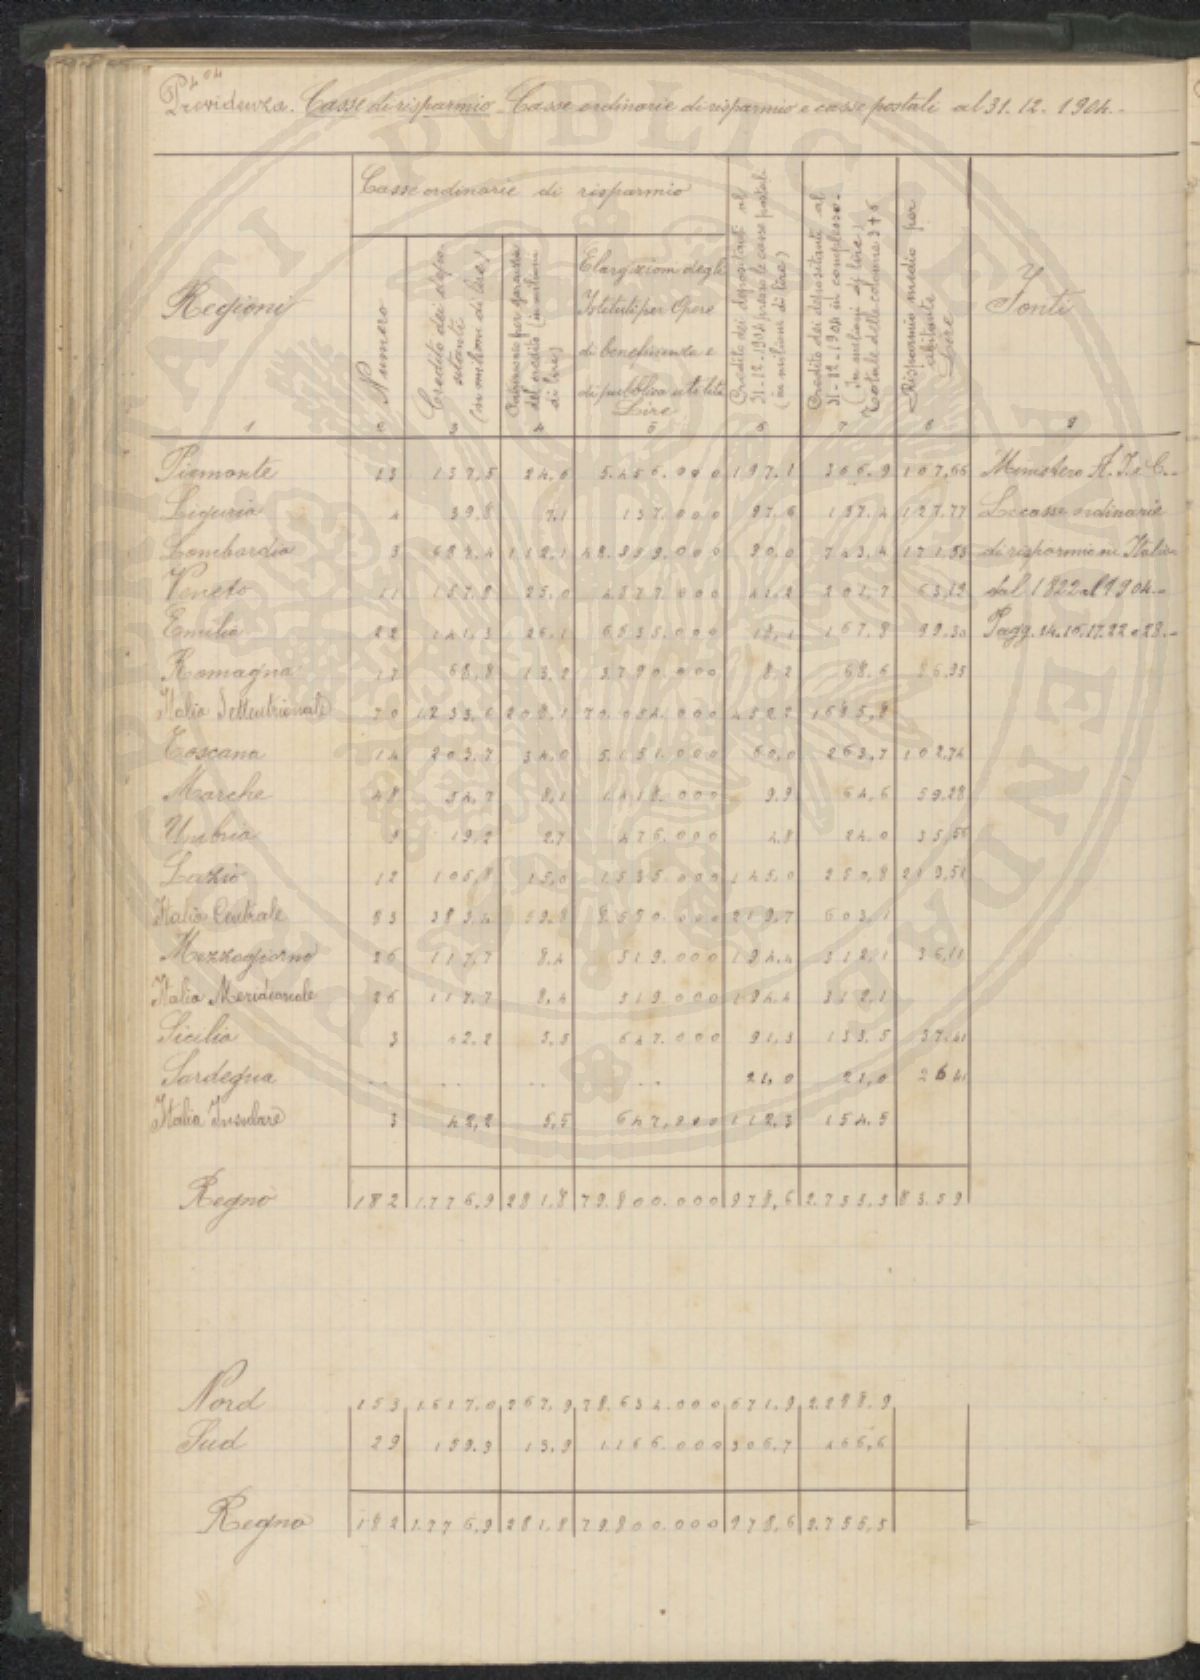 404
Previdenza. Casse di risparmio - Casse ordinarie di risparmio e casse postali al 31.12.1904.-
Regioni
Casse ordinarie di risparmio
Numero
Credito dei depositanti (in milioni di lire)
Patrimonio per garanzia del credito (in milioni di lire)
Elargizioni degli Istituti per Opere di beneficenza e di pubblica utilità Lire
Credito dei depositanti al 31-12-1904 presso le casse postali (in milioni di lire)
Credito dei depositanti al 31-12-1904 in complesso - (In milioni di lire) Totale delle colonne 3+6
Risparmio medio per abitante Lire
Fonti
1 2 3 4 5 6 7 8 9
Piemonte 23 137,5 24,6 5.456.000 197.1 107,66 Ministero A. I. e C.-
Liguria 4 39,8 7,1 137.000 97,6 137.4 127.77 Le casse ordinarie
Lombardia 112,1 80.0 di risparmio in Italia
Veneto 11 157,8 25,0 63,12 dal 1822 al 1904.-
Emilia 22 26,1 167,8 Pagg. 14.16.17.22 e 28.-
Romagna 68,8 13,2 3790.000 8.2
Italia Settentrionale 70 1233,6 208,1 70.054.000 1685,8
Toscana 14 203,7 34,0 5.151.000 60,0 263,7 102,74
Marche 48 54,7 8,1 1.418.000 9.9 64,6 59.28
Umbria 9 19,2 2,7 476.000 4.8 24.0 35,56
Lazio 12 105,8 15,0 1535.000 145,0 250,8
Italia Centrale 83 383,4 59,8 8.580.000 219,7 603,1
Mezzogiorno 26 117,7 8,4 519.000 194,4 312,1 36,11
Italia Meridionale 26 117,7 8,4 519.000 194,4 312,1
Sicilia 3 42,2 5,5 647.000 91,3 133,5 37,41
Sardegna .. .. .. .. 21,0 21,0 26 41
Italia Insulare 3 42,2 5,5 647,000 112,3 154,5
Regno 182 1.776,9 281,8 79.800.000 978,6 2.755,5 83.59
Nord 153 1.617,0 267,9 78.634.000 671,9 2.288,9
Sud 29 159.9 13,9 1.166.000 306,7 466,6
Regno 182 1.776,9 281,8 79.800.000 978,6 2.755,5